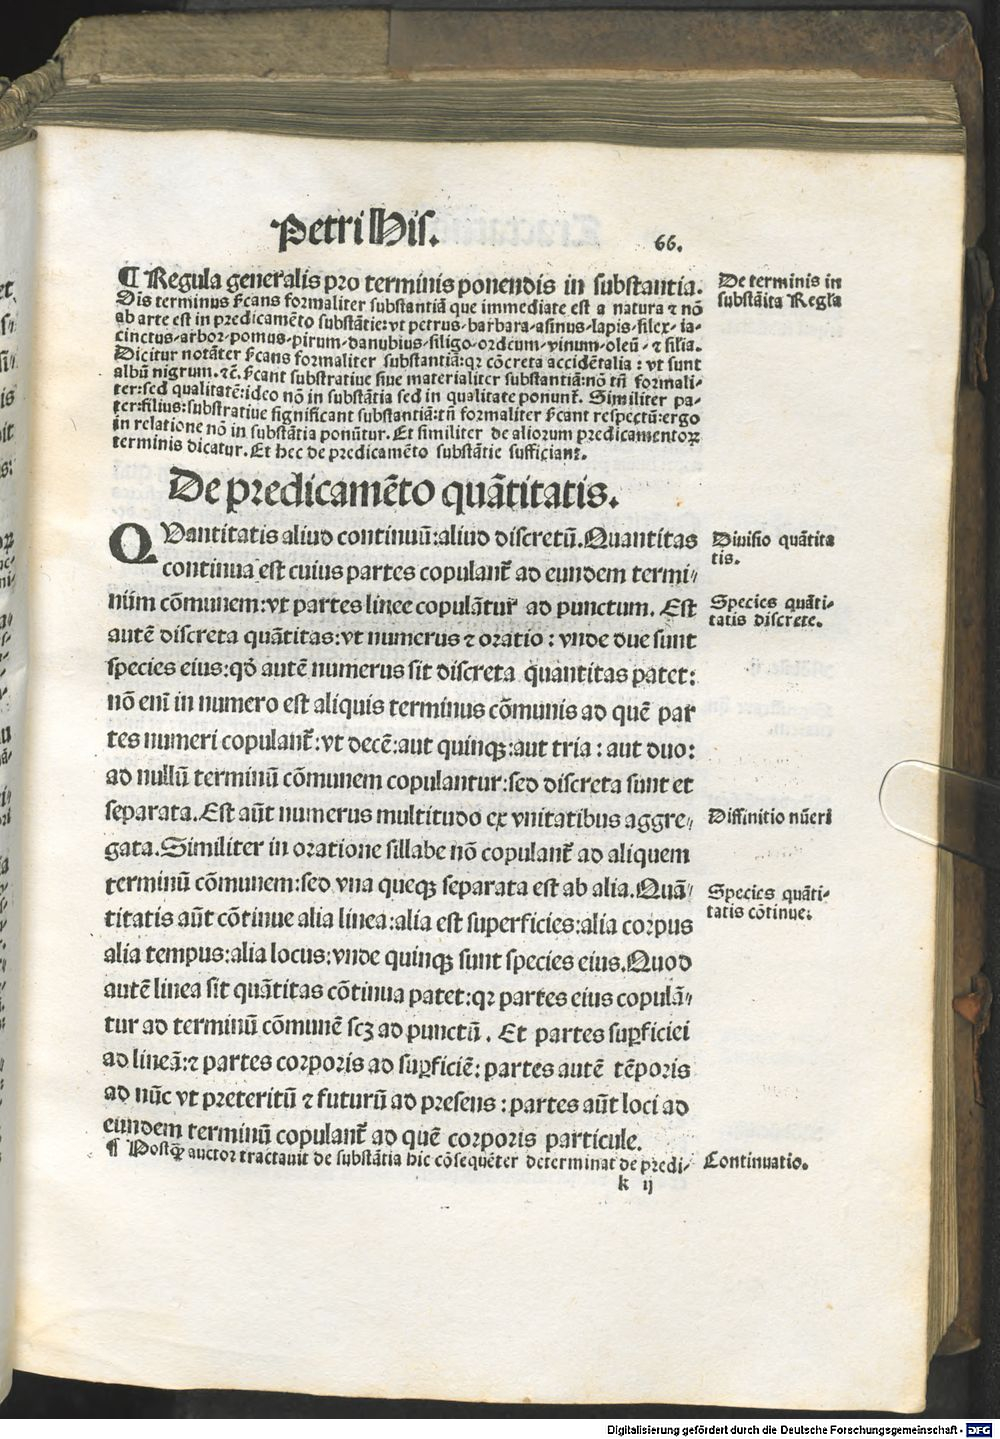 Petri His.
66.
¶ Regula generalis pro terminis ponendis in substantia.
De terminis in
substãtia Regła
Ois terminus sↄcans formaliter substantiã que immediate est a natura ⁊ nõ
ab arte est in predicamẽto substãtie: vt petrus, barbara, asinus, lapis, silex, ia-
cinctus, arbor, pomus, pirum, danubius, siligo, ordeum, vinum, oleũ, ⁊ silia.
Dicitur notãter sↄcans formaliter substantiã: qꝛ cõcreta accidẽtalia: vt sunt
albũ nigrum. ⁊c̃. sↄcant substratiue siue materialiter substantiã: nõ tñ formali-
ter: sed qualitatẽ: ideo nõ in substãtia sed in qualitate ponunt̃. Similiter pa-
ter: filius: substratiue significant substantiã: tñ formaliter sↄcant respectũ: ergo
in relatione nõ in substãtia ponũtur. Et similiter de aliorum predicamentoꝝ
terminis dicatur. Et hec de predicamẽto substãtie sufficiant̃.
De predicamẽto quãtitatis.
QVantitatis aliud continuũ: aliud discretũ. Quantitas
Diuisio quãtita
tis.
continua est cuius partes copulant̃ ad eundem termi⸗
nũm cõmunem: vt partes linee copulãtur ad punctum. Est
Species quãti-
tatis discrete.
autẽ discreta quãtitas: vt numerus ⁊ oratio: vnde due sunt
species eius: qđ autẽ numerus sit discreta quantitas patet:
nõ eni in numero est aliquis terminus cõmunis ad quẽ par
tes numeri copulant̃: vt decẽ: aut quinqꝫ: aut tria: aut duo:
ad nullũ terminũ cõmunem copulantur: sed discreta sunt et
separata. Est aũt numerus multitudo ex vnitatibus aggre⸗
Diffinitio nũeri
gata. Similiter in oratione sillabe nõ copulant̃ ad aliquem
terminũ cõmunem: sed vna queqꝫ separata est ab alia. Quã⸗
Species quãti-
tatis cõtinue:
titatis aũt cõtinue alia linea: alia est superficies: alia corpus
alia tempus: alia locus: vnde quinqꝫ sunt species eius. Quod
autẽ linea sit quãtitas cõtinua patet: qꝛ partes eius copulã⸗
tur ad terminũ cõmunẽ scꝫ ad punctũ. Et partes suꝑficiei
ad lineã: ⁊ partes corporis ad suꝑficiẽ: partes autẽ tẽporis
ad nũc vt preteritũ ⁊ futurũ ad presens: partes aũt loci ad
eundem terminũ copulant̃ ad quẽ corporis particule.
¶ Postqꝫ auctor tractauit de substãtia hic cõsequẽter determinat de predi⸗
Continuatio.
k ij
Digitalisierung gefördert durch die Deutsche Forschungsgemeinschaft - DFG